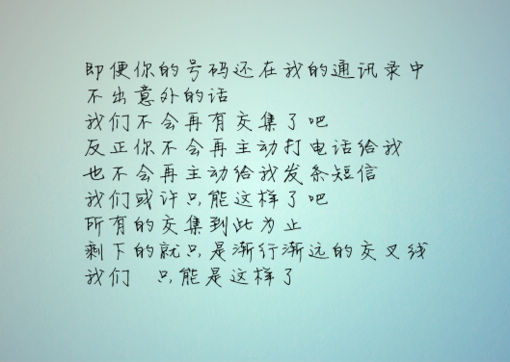 即便你的号码还在我的通讯录中
不出意外的话
我们不会再有交集了吧
反正你不会再主动打电话给我
也不会再主动给我发条短信
我们或许只能这样了吧
所有的交集到此为止
剩下的就只是渐行渐远的交叉线
我们 只能是这样了